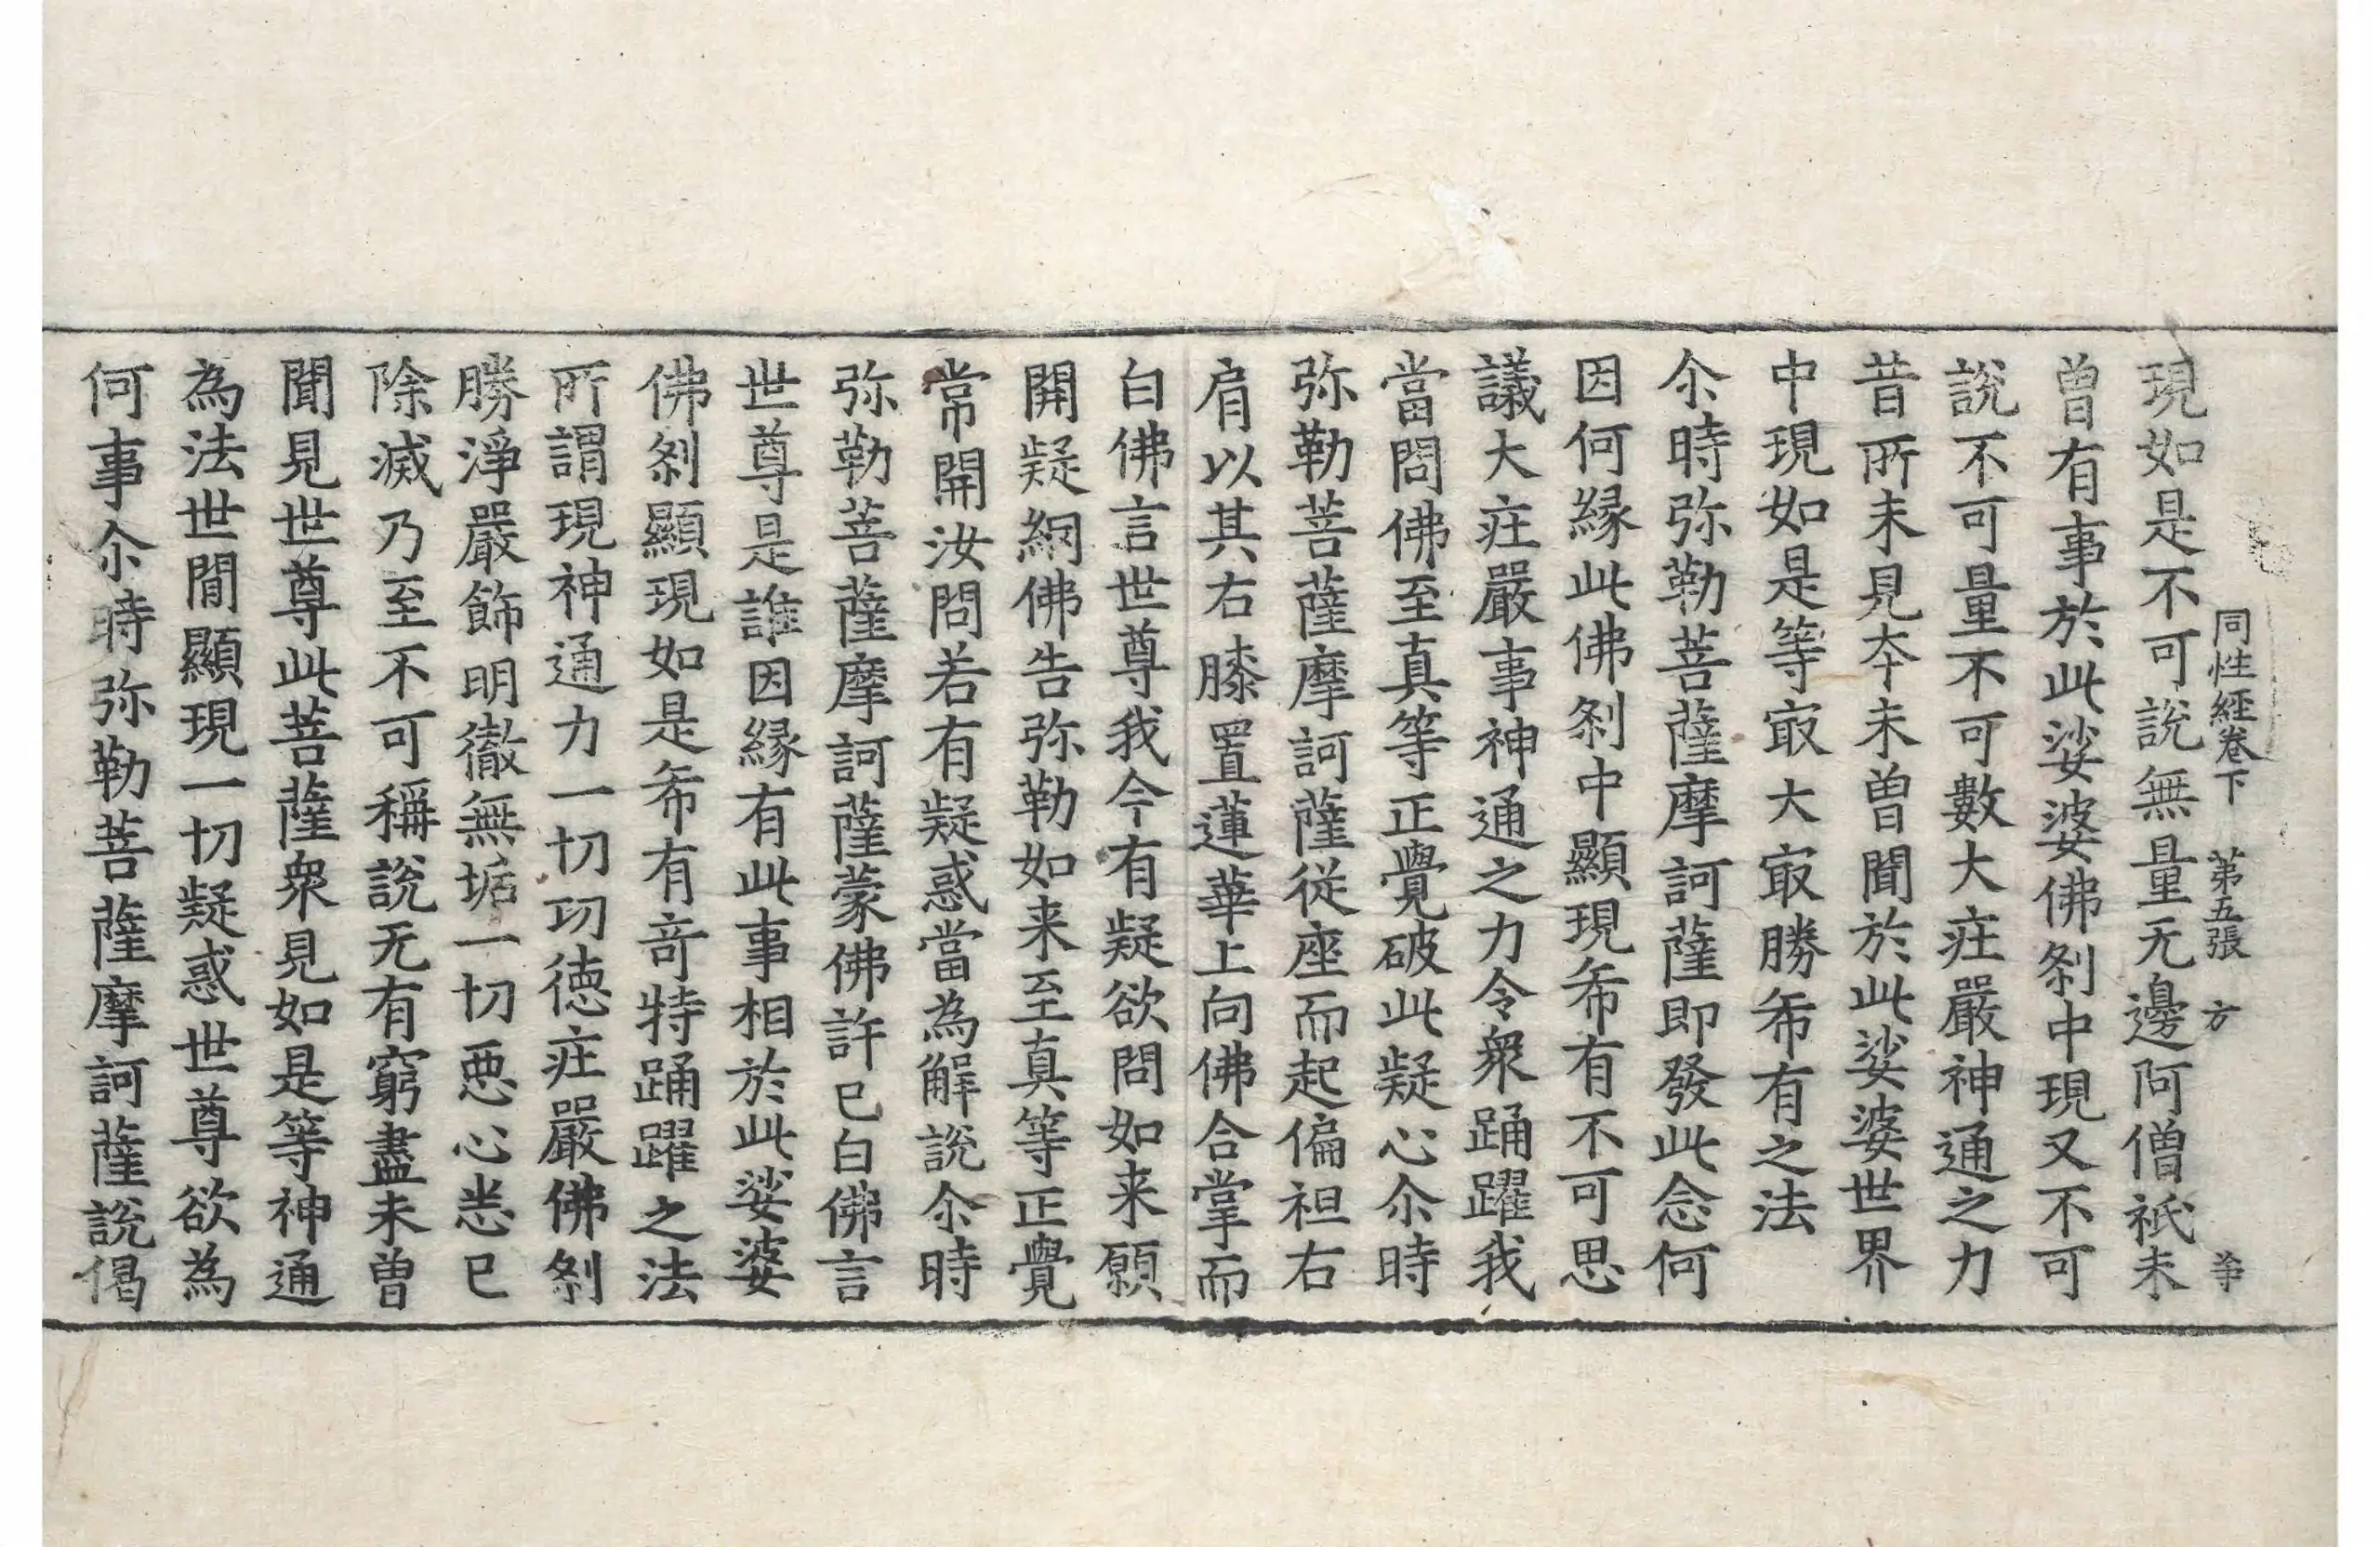 同性經卷下　第五張　方
現如是不可說無量无邊阿僧祇未
曾有事於此娑婆佛剎中現又不可
說不可量不可數大莊嚴神通之力
昔所未見本未曾聞於此娑婆世界
中現如是等冣大冣勝希有之法
尒時弥勒菩薩摩訶薩即發此念何
因何緣此佛剎中顯現希有不可思
議大莊嚴事神通之力令衆踊躍我
當問佛至真等正覺破此疑心尒時
弥勒菩薩摩訶薩從座而起偏袒右
肩以其右膝置蓮華上向佛合掌而
白佛言世尊我今有疑欲問如来願
開疑網佛告弥勒如来至真等正覺
常開汝問若有疑惑當為解說尒時
弥勒菩薩摩訶薩蒙佛許已白佛言
世尊是誰因緣有此事相於此娑婆
佛剎顯現如是希有竒特踊躍之法
所謂現神通力一切功德莊嚴佛剎
勝淨嚴飾明徹無垢一切悪心悉已
除滅乃至不可稱說无有窮盡未曾
聞見世尊此菩薩衆見如是等神通
為法世間顯現一切疑惑世尊欲為
何事尒時弥勒菩薩摩訶薩說偈